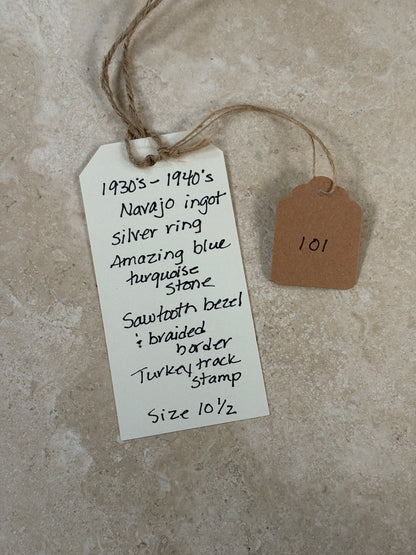 1930's - 1940's
Navajo ingot
silver ring
Amazing blue
turquoise
stone
Sawtooth bezel
& braided
border
Turkey track
stamp
Size 10 1/2
101